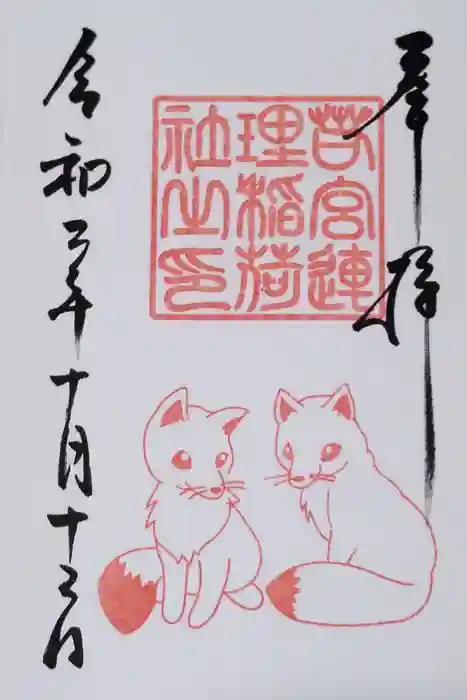 奉拝
若宮連
理稲荷
社之印
令和三年十月十三日